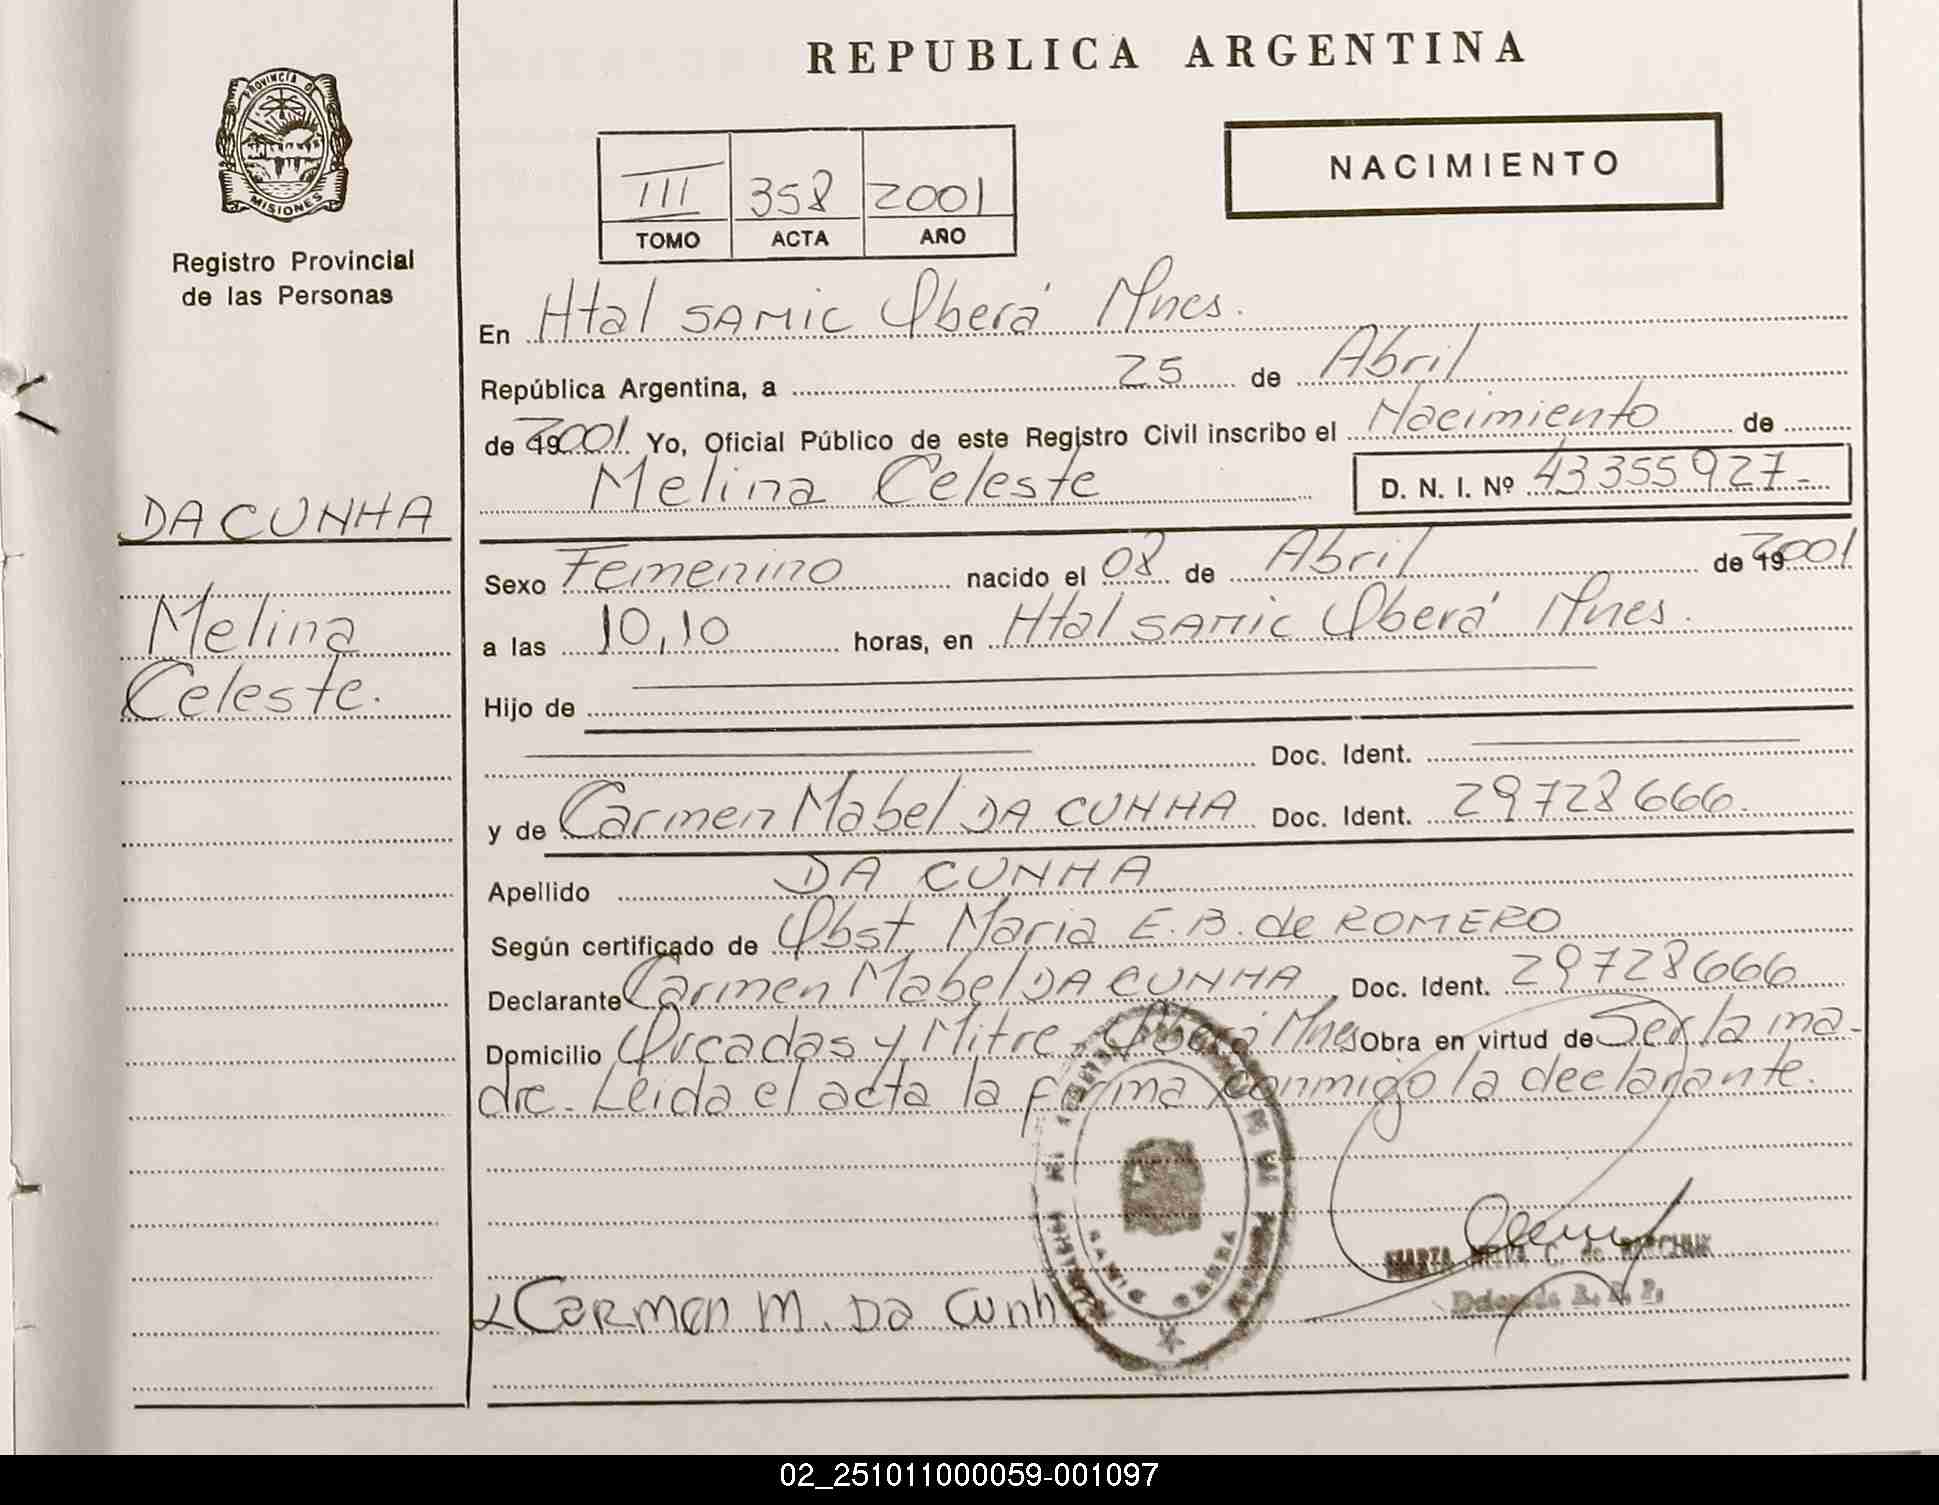 REPUBLICA ARGENTINA
PROVINCIA DE
MISIONES
Registro Provincial
de las Personas
III 358 2001
TOMO ACTA AÑO
NACIMIENTO
En Htal SAMIC Oberá Mnes.
República Argentina, a 25 de Abril
de 2001. Yo, Oficial Público de este Registro Civil inscribo el Nacimiento de
Melina Celeste D. N. I. Nº 43355927-
DA CUNHA
Melina
Celeste.
Sexo Femenino nacido el 08 de Abril de 2001
a las 10,10 horas, en Htal SAMIC Oberá Mnes.
Hijo de
Doc. Ident.
y de Carmen Mabel DA CUNHA Doc. Ident. 29728666.
Apellido DA CUNHA
Según certificado de Obst. Maria E. B. de ROMERO
Declarante Carmen Mabel DA CUNHA, Doc. Ident. 29728666
Domicilio Orcadas y Mitre - Oberá Mnes Obra en virtud de Ser la ma-
dre. Leida el acta la firma conmigo la declarante.
Carmen M. Da Cunh
SAMIC OBERA
C. de
Delegada R. P. P.
02_251011000059-001097